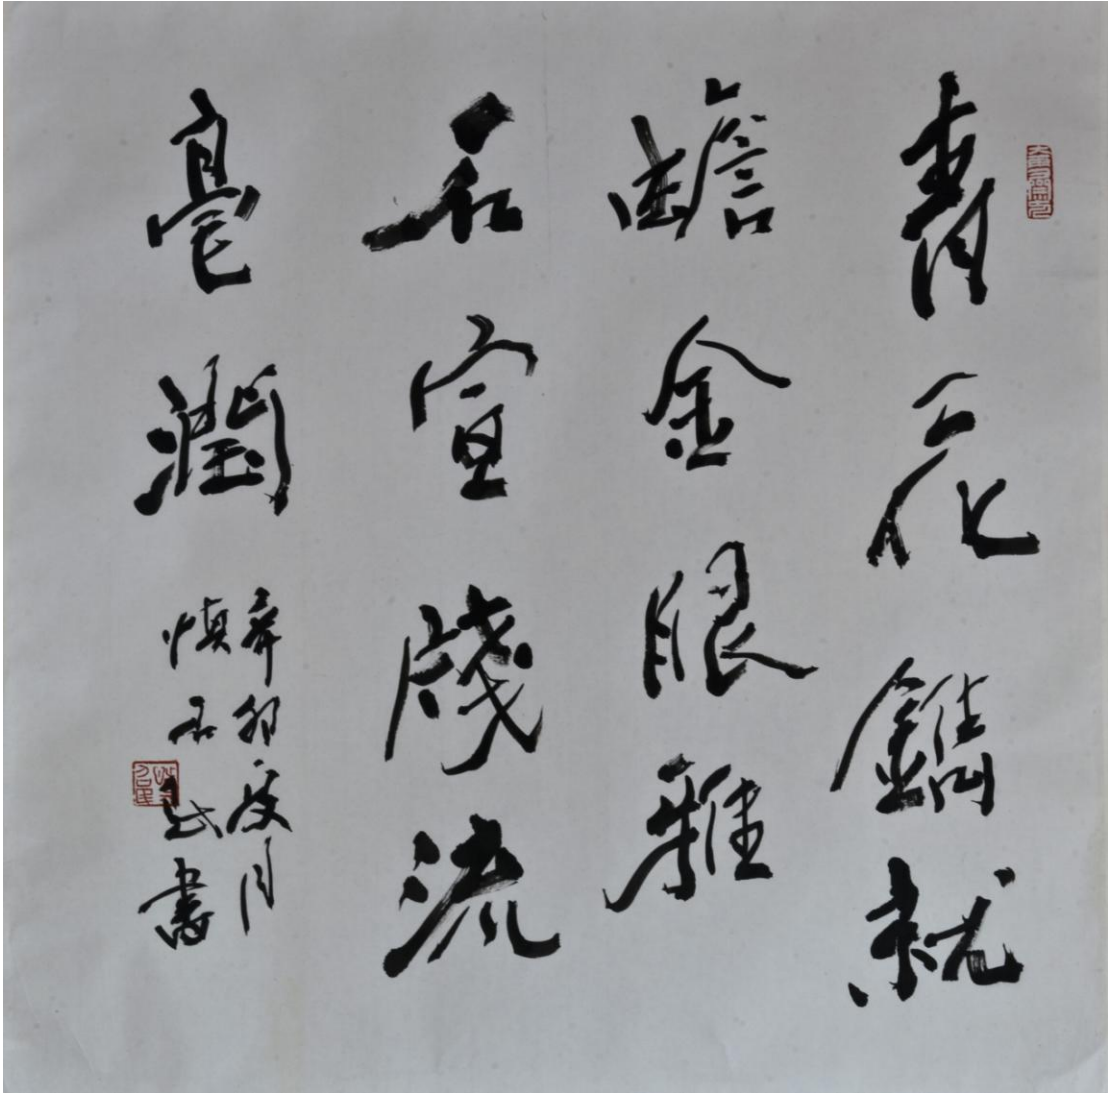 青花鐫就
蟾金眼雅
石宣牋流
毫潤
辛卯夏月
慎石斌書